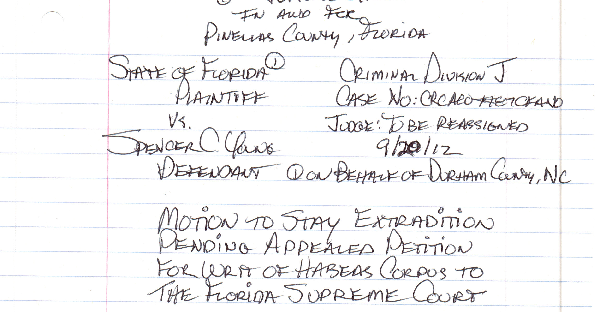 IN AND FOR
PINELLAS COUNTY, FLORIDA
STATE OF FLORIDA① CRIMINAL DIVISION J
PLAINTIFF CASE NO:
VS. JUDGE: TO BE REASSIGNED
SPENCER C YOUNG 9/20/12
DEFENDANT ① ON BEHALF OF DURHAM COUNTY, NC
MOTION TO STAY EXTRADITION
PENDING APPEALED PETITION
FOR WRIT OF HABEAS CORPUS TO
THE FLORIDA SUPREME COURT